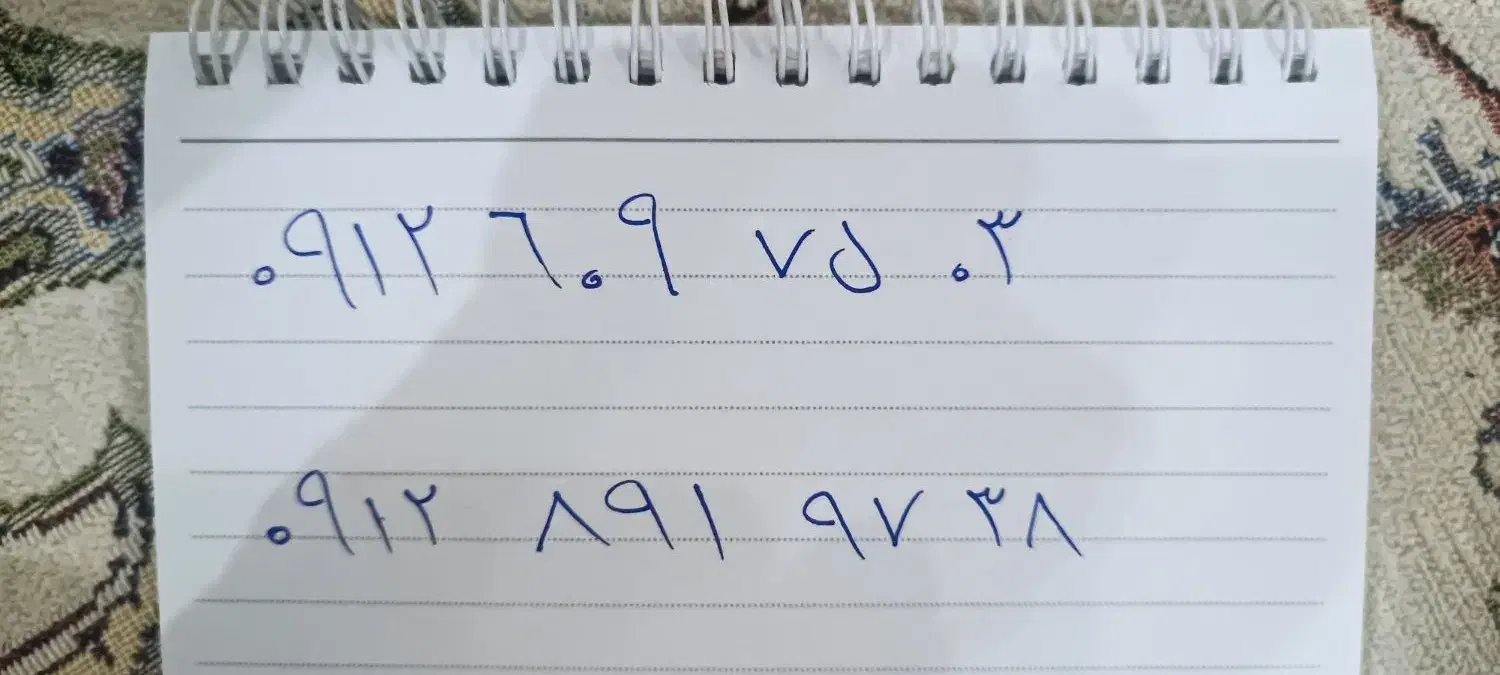 ۰۹۱۲ ٦۰۹ ۷۵ ۰۳
۰۹۱۲ ۸۹۱ ۹۷ ۳۸